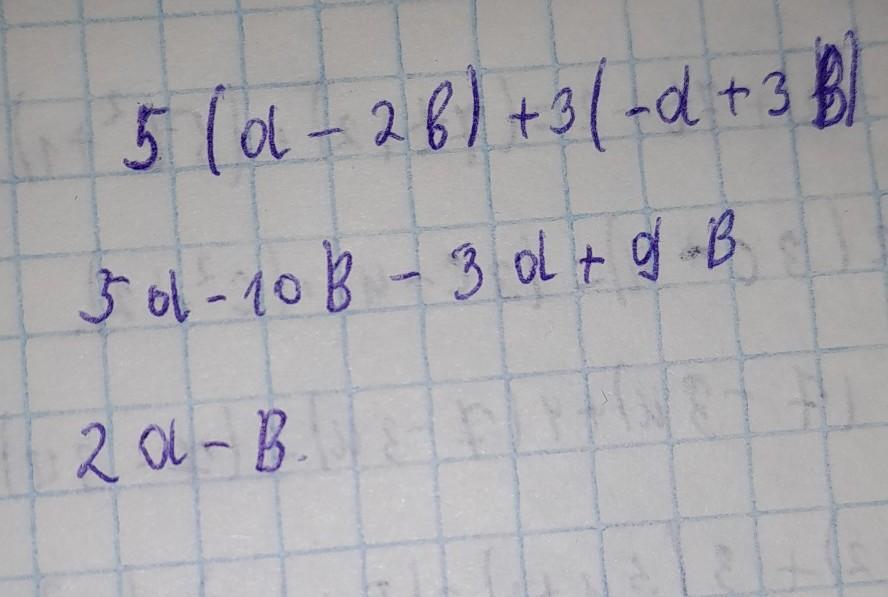 5(a - 2b) + 3(-a + 3b)
5a - 10b - 3a + 9b
2a - b.